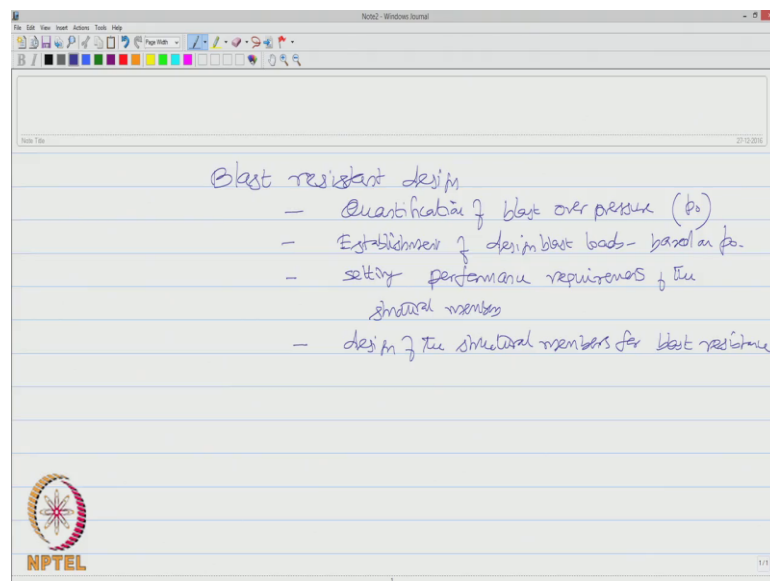 Note2 - Windows Journal
File Edit View Insert Actions Tools Help
Page Width
B I
Note Title
27-12-2016
Blast resistant design
— Quantification of blast over pressure (po)
— Establishment of design blast loads - based on po.
— setting performance requirements of the
structural members
— design of the structural members for blast resistance
NPTEL
1/1